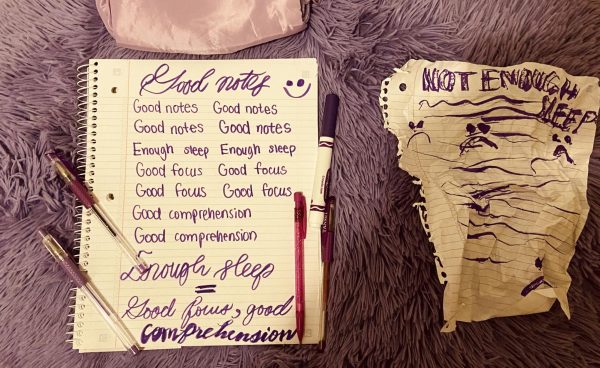 Good notes
Good notes Good notes
Good notes Good notes
Enough sleep Enough sleep
Good focus Good focus
Good focus Good focus
Good comprehension
Good comprehension
Enough sleep
=
Good focus, good
comprehension
NOT ENOUGH
SLEEP